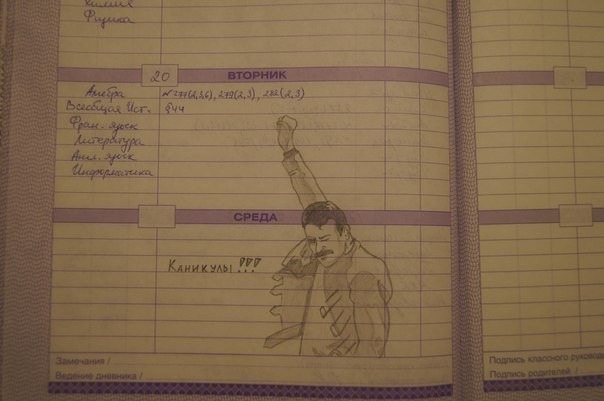 Химия
Физика
20 ВТОРНИК
Алгебра №277(2,3,6), 279(2,3), 282(2,3)
Всеобщая Ист. §44
Фран. язык
Литература
Англ. язык
Информатика
СРЕДА
Каникулы!!!
Замечания /
Ведение дневника /
Подпись классного руковод
Подпись родителей /